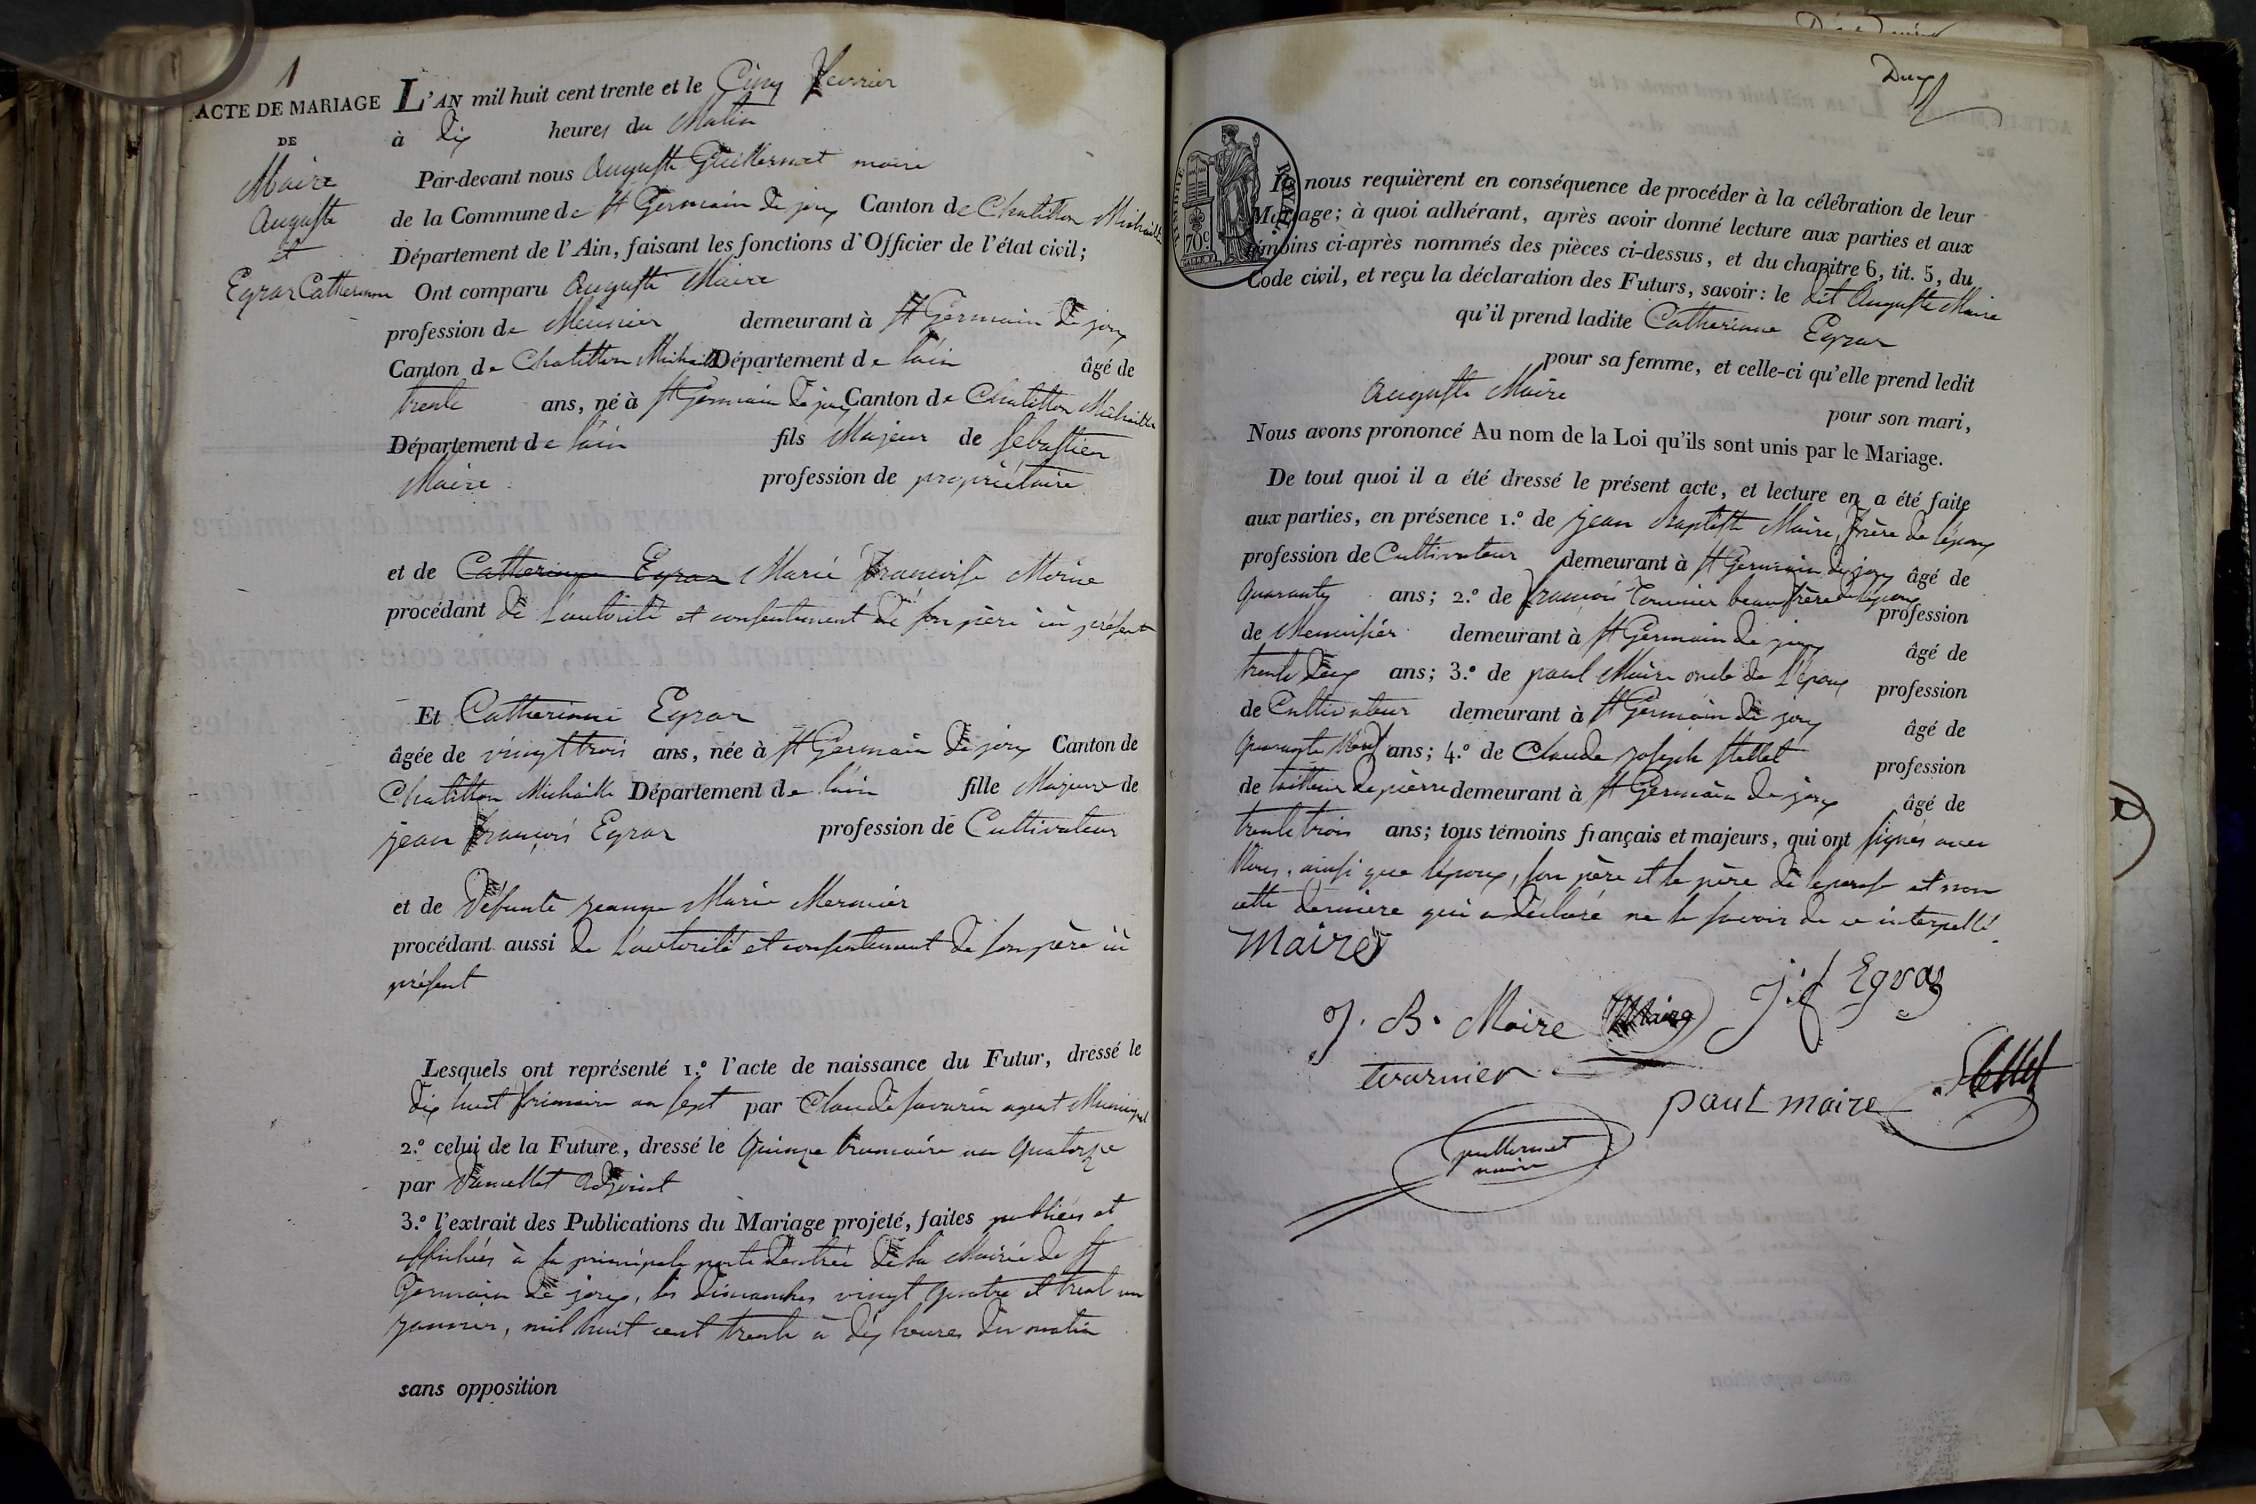 1
ACTE DE MARIAGE
DE
Maire
Auguste
et
Egraz Catherinne
L'AN mil huit cent trente et le Cinq fevrier
à dix heures du Matin
Par-devant nous Auguste Guillermet maire
de la Commune de St Germain de joux Canton de Chatillon Michaille
Département de l'Ain, faisant les fonctions d'Officier de l'état civil;
Ont comparu Auguste Maire
profession de Meunier demeurant à St Germain de joux
Canton de Chatillon Michaille Département de lain âgé de
trente ans, né à St Germain de joux Canton de Chatillon Michaille
Département de lain fils Majeur de Sebastien
Maire profession de propriétaire
et de Catherinne Egraz Marie francoise
procédant de L'autorité et consentement de son père ici présent
Et Catherinne Egraz
âgée de vingt trois ans, née à St Germain de joux Canton de
Chatillon Michaille Département de lain fille Majeure de
jean françois Egraz profession de Cultivateur
et de défunte jeanne Marie Mermier
procédant aussi de L'autorité et consentement de son père ici
présent
Lesquels ont représenté 1.º l'acte de naissance du Futur, dressé le
dix huit frimaire an sept par Claude Savarin agent Municipal
2.º celui de la Future, dressé le quinze brumaire an quatorze
par adjoint
3.º l'extrait des Publications du Mariage projeté, faites publiées et
affichées à la principale porte d'entrée de la Mairie de St
Germain de joux, les dimanches vingt quatre et trent un
janvier, mil huit cent trente à dix heures du matin
sans opposition
Deux
TIMBRE ROYAL.
70c.
Et nous requièrent en conséquence de procéder à la célébration de leur
Mariage; à quoi adhérant, après avoir donné lecture aux parties et aux
témoins ci-après nommés des pièces ci-dessus, et du chapitre 6, tit. 5, du
Code civil, et reçu la déclaration des Futurs, savoir: le dit Auguste Maire
qu'il prend ladite Catherinne Egraz
pour sa femme, et celle-ci qu'elle prend ledit
Auguste Maire pour son mari,
Nous avons prononcé Au nom de la Loi qu'ils sont unis par le Mariage.
De tout quoi il a été dressé le présent acte, et lecture en a été faite
aux parties, en présence 1.º de jean Baptiste Maire, frère de l'époux
profession de Cultivateur demeurant à St Germain de joux âgé de
quarante ans; 2.º de francois Tournier beau frère de lépoux profession
de Menuisier demeurant à St Germain de joux âgé de
trente deux ans; 3.º de paul Maire oncle de l'époux profession
de Cultivateur demeurant à St Germain de joux âgé de
quarante Neuf ans; 4.º de Claude joseph Stellet profession
de tailleur de pierre demeurant à St Germain de joux âgé de
trente trois ans; tous témoins français et majeurs, qui ont signés avec
Nous, ainsi que lépoux, son père et le père de lepouse et non
cette dernière qui a déclaré ne le savoir de ce interpellé.
Maire
J. B. Maire Maire j. f Egraz
tournier
paul maire Stellet
guillermet
maire